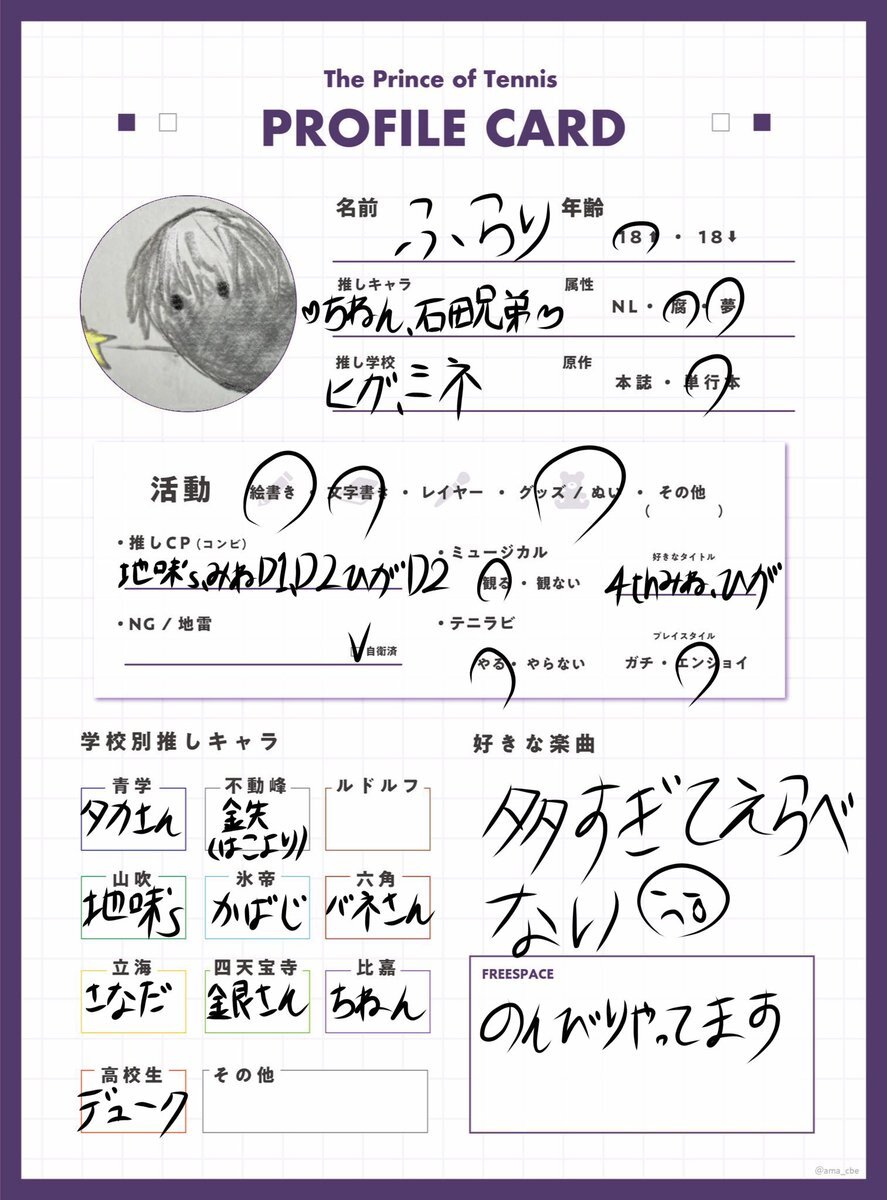 The Prince of Tennis
PROFILE CARD
名前 ふらり 年齢 18⬆・18⬇
推しキャラ ♡ちねん、石田兄弟♡ 属性 NL・腐・夢
推し学校 ヒガ、ミネ 原作 本誌・単行本
活動 絵書き・文字書き・レイヤー・グッズ / ぬい・その他
( )
・推しCP (コンビ)
地味's、みねD1、D2 ひがD2
・ミュージカル 好きなタイトル
観る・観ない 4thみね、ひが
・NG / 地雷
自衛済
・テニラビ プレイスタイル
やる・やらない ガチ・エンジョイ
学校別推しキャラ
青学 不動峰 ルドルフ
タカさん 鉄
(はこより)
山吹 氷帝 六角
地味's かばじ バネさん
立海 四天宝寺 比嘉
さなだ 銀さん ちねん
高校生 その他
デューク
好きな楽曲
多すぎてえらべ
ない
FREESPACE
のんびりやってます
@ama_cbe